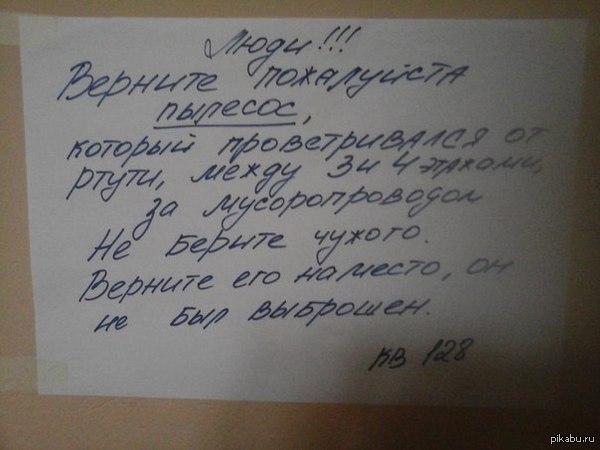 Люди!!!
Верните пожалуйста
пылесос,
который проветривался от
ртути, между 3 и 4 этажами,
за мусоропроводом
Не берите чужого.
Верните его на место, он
не был выброшен.
кв 128
pikabu.ru